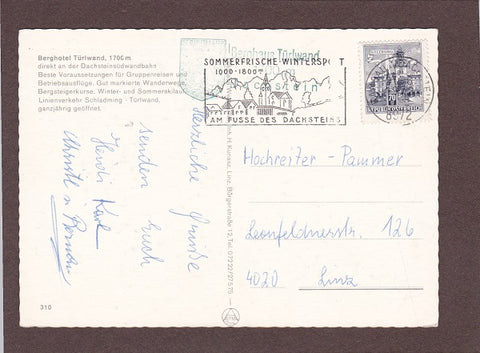 Berghotel Türlwand, 1700 m
direkt an der Dachsteinsüdwandbahn
Beste Voraussetzungen für Gruppenreisen und
Betriebsausflüge. Gut markierte Wanderwege,
Bergsteigerkurse, Winter- und Sommerskilauf
Linienverkehr Schladming - Türlwand,
ganzjährig geöffnet.
Berghaus Türlwand
SOMMERFRISCHE WINTERSPORT
1000-1800
AM FUSSE DES DACHSTEINS
8972
REPUBLIK ÖSTERREICH
Herzliche Grüße
senden Euch
Heidi Karl
Christl u.
H. Kunasz, Linz, Bürgerstraße 12, Tel. 07222/27575
Hochreiter - Pammer
Leonfeldnerstr. 126
4020 Linz
310